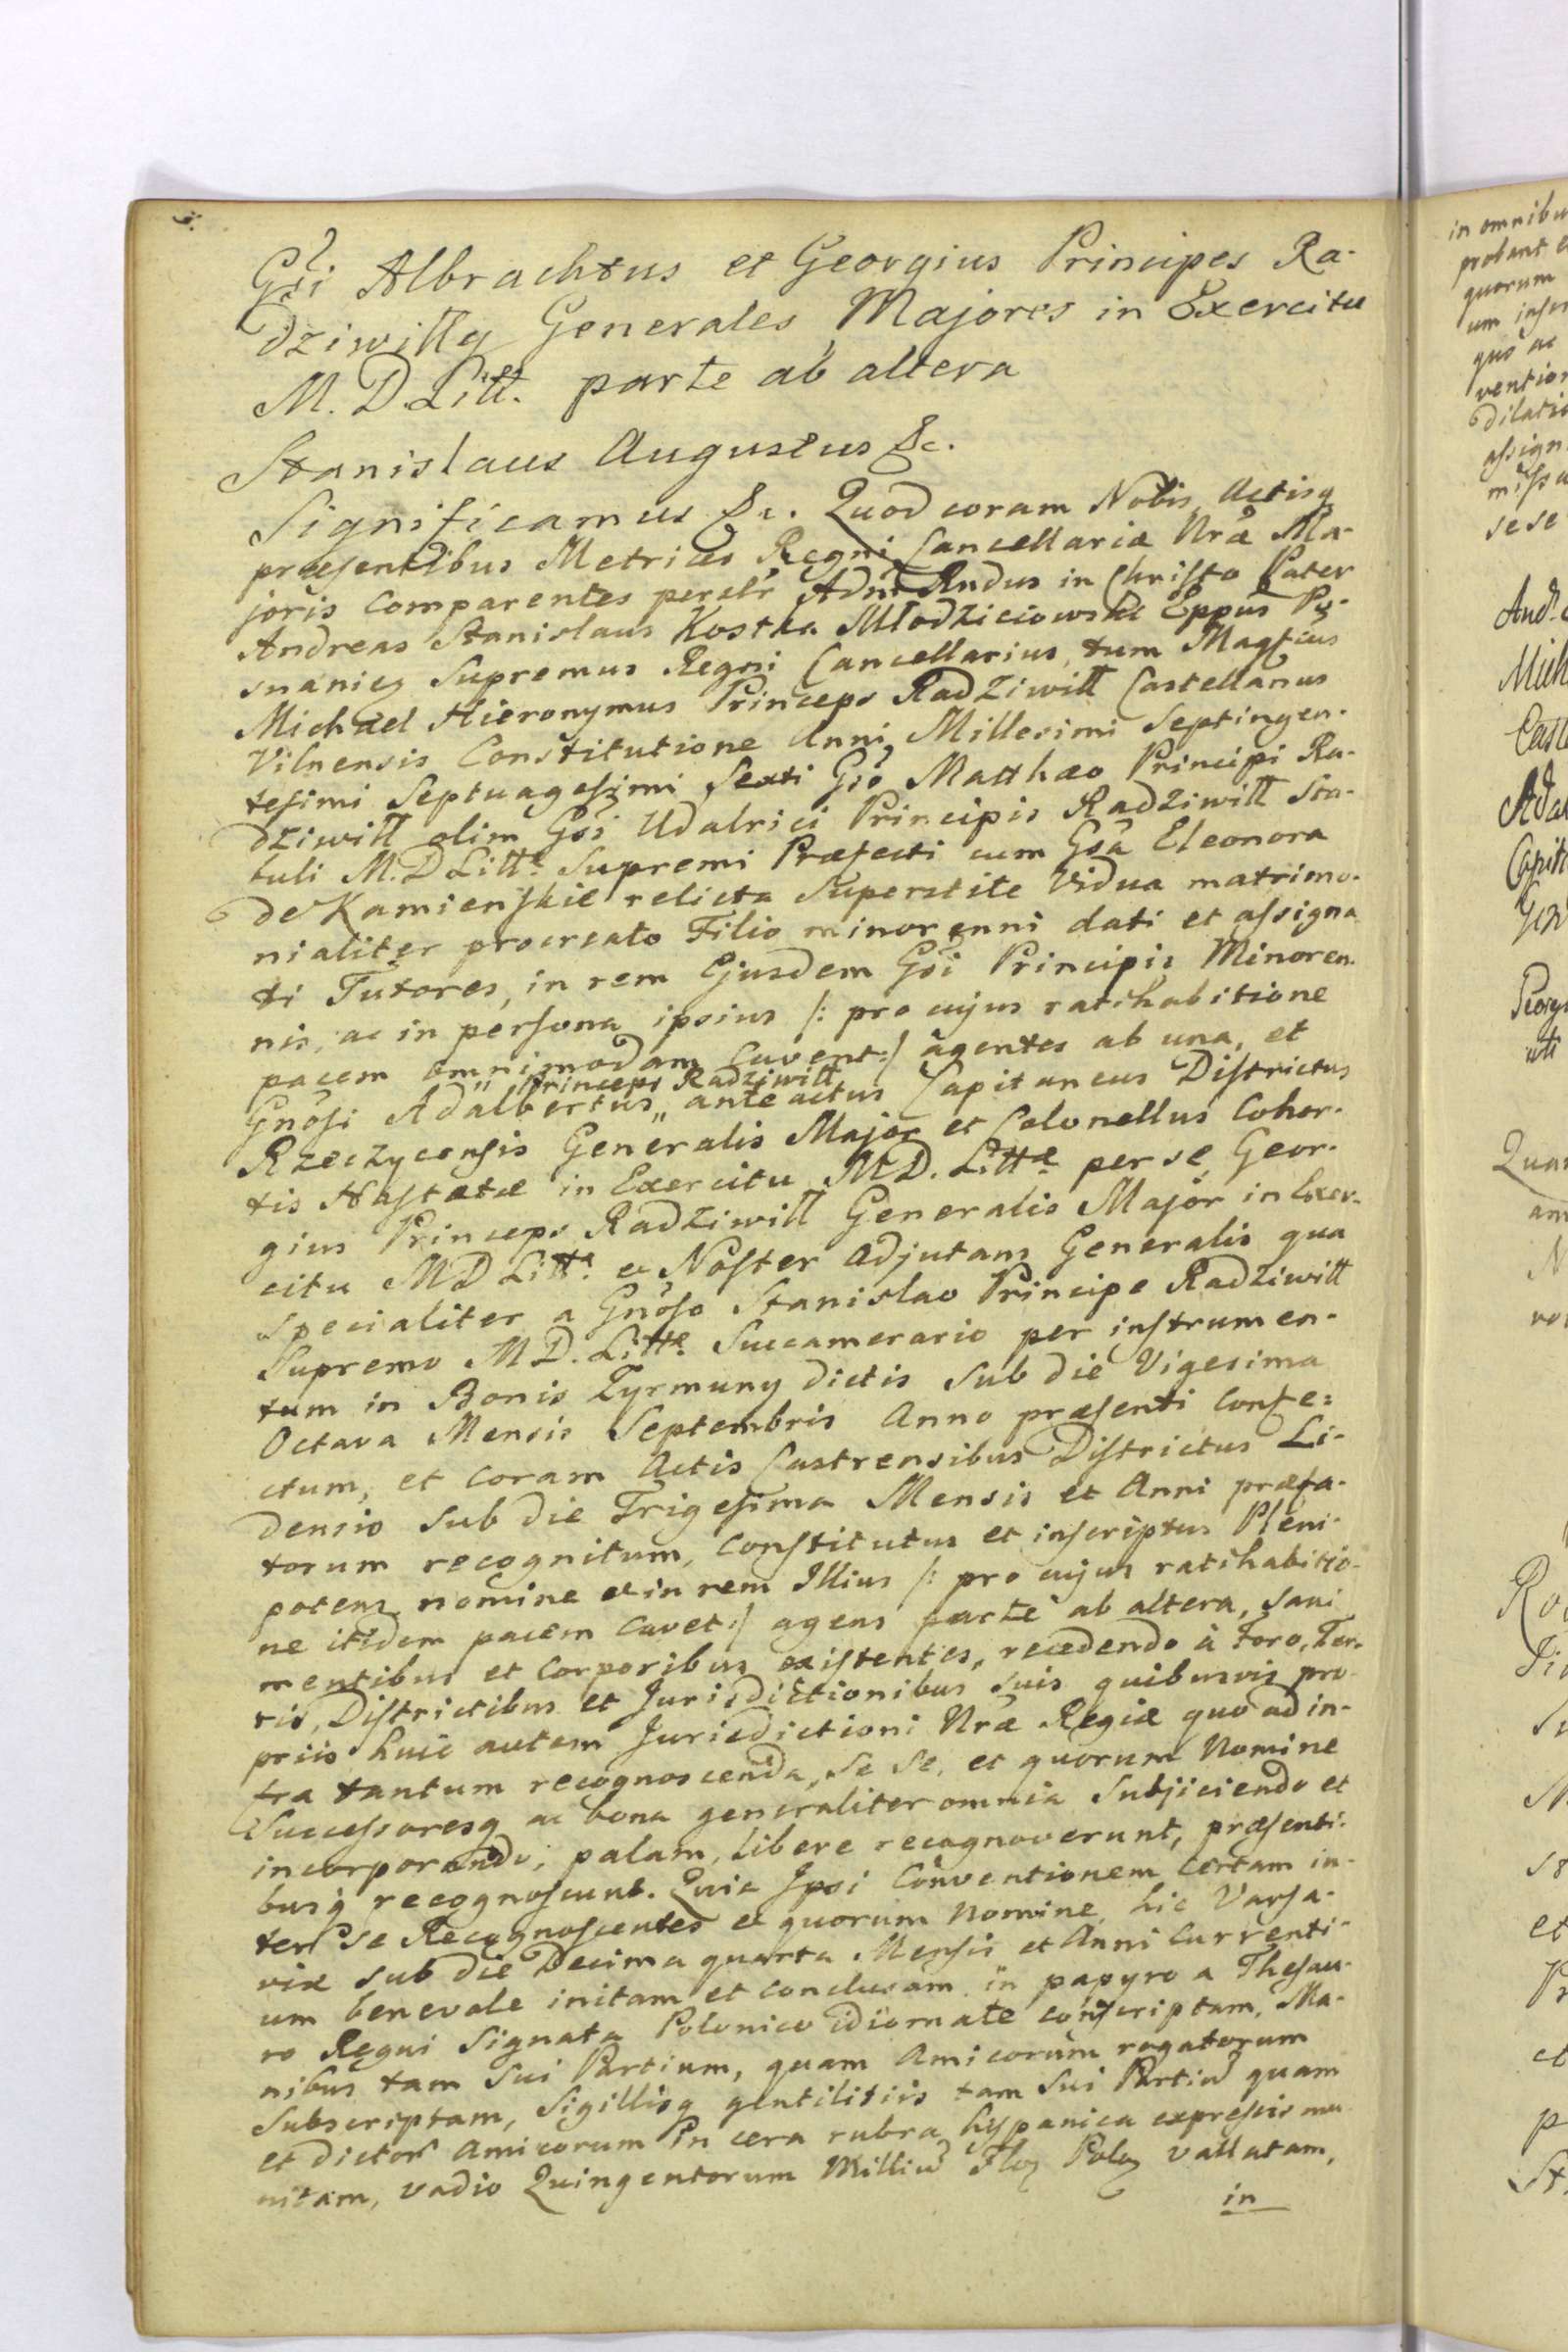 Gsi Albrachtus et Georgius Principes Ra-
dziwilly Generales Majores in Exercitu
M. D. Litt. parte ab altera
Stanislaus Augustus &c.
Significamus &c. Quod coram Nobis Actisq
præsentibus Metrices Regni Cancellariæ Nræ Ma-
joris Comparentes perettr Adm Rndus in Christo Pater
Andreas Stanislaus Kostka Młodzieiowski Eppus Po-
snanien Supremus Regni Cancellarius, tum Magficus
Michael Hieronymus Princeps Radziwill Castellanus
Vilnensis Constitutione Anni Millesimi Septingen-
tesimi Septuagesimi Sexti Gso Matthæo Principi Ra-
dziwill olim Gsi Udalrici Principis Radziwill Sta-
buli M.D Litt: Supremi Præfecti cum Gsa Eleonora
de Kamienskie relicta Superstite Vidua matrimo-
nialiter procreato Filio minorenni dati et assigna
ti Tutores, in rem Ejusdem Gsi Principis Minoren-
nis, ac in persona ipsius /: pro cujus ratihabitione
pacem omnimodam Cavent :/ agentes ab una, et
Princeps Radziwill
Gnosi Adalbertus " ante actus Capitaneus Districtus
Rzeczycensis Generalis Major et Colonellus Cohor-
tis Hastatæ in Exercitu M.D. Littæ per se, Geor-
gius Princeps Radziwill Generalis Major in Exer-
citu MD Litt: et Noster Adjutans Generalis qua
Specialiter a Gnoso Stanislao Principe Radziwill
Supremo M D. Littæ Succamerario per instrumen-
tum in Bonis Zyrmuny dictis Sub die Vigesima
Octava Mensis Septembris Anno præsenti Confe=
ctum, et Coram Actis Castrensibus Districtus Li-
densis Sub die Trigesima Mensis et Anni præfa-
torum recognitum, Constitutus et inscriptus Pleni-
potens nomine et in rem Illius /: pro cujus ratihabitio-
ne itidem pacem Cavet :/ agens parte ab altera, Sani
mentibus et Corporibus existentes, recedendo à Foro, Ter-
ris, Districtibus et Jurisdictionibus Suis quibusvis pro-
priis huic autem Jurisdictioni Nræ Regiæ quo ad in-
fra tantum recognoscenda, Se Se, et quorum Nomine
Successoresq ac bona generaliter omnia Subjiciendo et
incorporando, palam, libere recognoverunt, præsenti-
busq recognoscunt. Quia Ipsi Conventionem Certam in-
ter Se Recognoscentes et quorum Nomine, hic Varsa-
viæ Sub die Decima quarta Mensis et Anni Currenti-
um benevole initam et Conclusam in papyro a Thesau-
ro Regni Signata Polonico idiomate conscriptam, Ma-
nibus tam Sui Partium, quam Amicorum rogatorum
Subscriptam, Sigillisq gentilitiis tam Sui Partiu quam
et dictor Amicorum in cera rubra hyspanica expressis mu-
nitam, vadio Quingentorum Milliu Flo Polo vallatam,
in
in omnibu
quorum
Quan